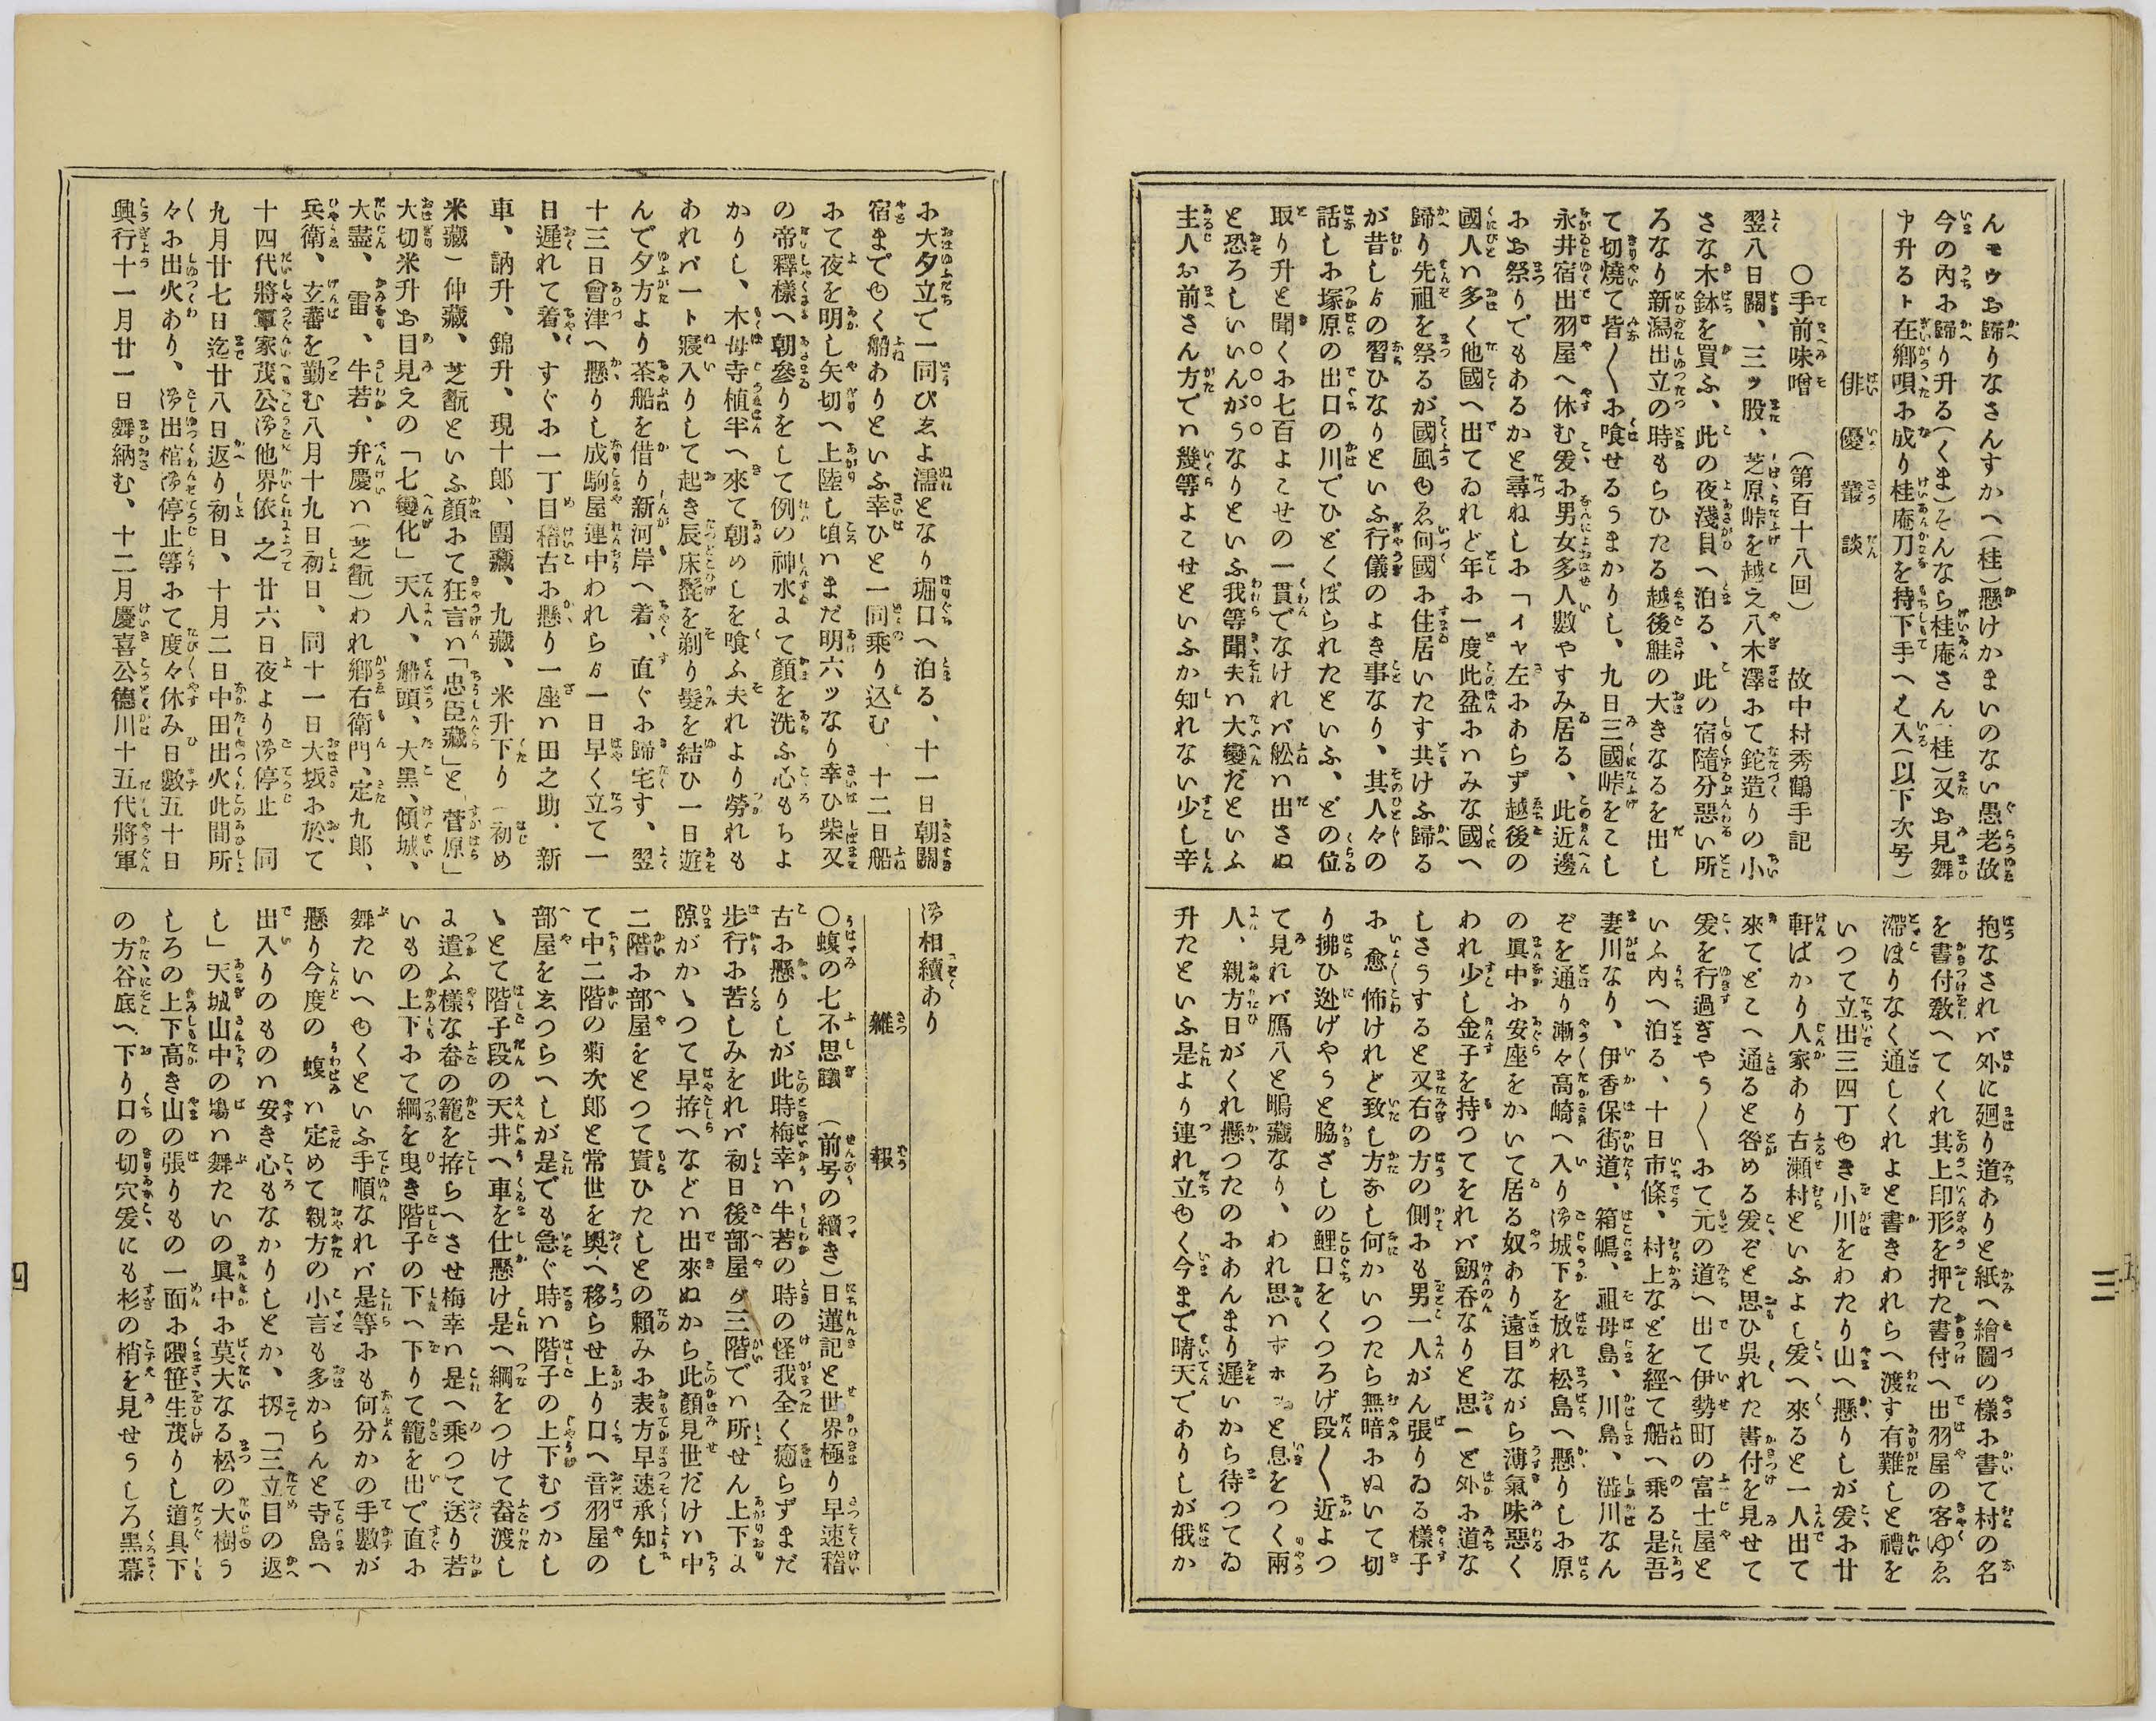 んモウお歸りなさんすかへ(桂)懸けかまいのない愚老故
今の內ふ歸り升る(くま)そんなら桂庵さん(桂)又お見舞
申升るト在鄉唄ふ成り桂庵刀を持下手へ這入(以下次号)
俳優叢談
○手前味噌 (第百十八回) 故中村秀鶴手記
翌八日關、三ッ股、芝原峠を越え八木澤ふて鉈造りの小
さな木鉢を買ふ、此の夜淺貝へ泊る、此の宿隨分惡い所
ろなり新潟出立の時もらひたる越後鮭の大きなるを出し
て切燒て皆〱ふ喰せるうまかりし、九日三國峠をこし
永井宿出羽屋へ休む爰ふ男女多人數やすみ居る、此近邊
ふお祭りでもあるかと尋ねしふ「イヤ左ふあらず越後の
國人ハ多く他國へ出てゐれど年ふ一度此盆ふハみな國へ
歸り先祖を祭るが國風ゆゑ何國ふ住居いたす共けふ歸る
が昔しゟの習ひなりといふ行儀のよき事なり、其人々の
話しふ塚原の出口の川でひどくぼられたといふ、どの位
取り升と聞くふ七百よこせの一貫でなけれバ舩ハ出さぬ
と恐ろしいいんがうなりといふ我等聞夫ハ大變だといふ
主人お前さん方でハ幾等よこせといふか知れない少し辛
抱なされバ外に廻り道ありと紙へ繪圖の樣ふ書て村の名
を書付敎へてくれ其上印形を押た書付へ出羽屋の客ゆゑ
滯ほりなく通しくれよと書きわれらへ渡す有難しと禮を
いつて立出三四丁ゆき小川をわたり山へ懸りしが爰ふ廿
軒ばかり人家あり古瀬村といふよし爰へ來ると一人出て
來てどこへ通ると咎める爰ぞと思ひ呉れた書付を見せて
爰を行過ぎやう〱ふて元の道へ出て伊勢町の富士屋と
いふ內へ泊る、十日市條、村上などを經て船へ乘る是吾
妻川なり、伊香保街道、箱嶋、祖母島、川島、澁川なん
ぞを通り漸々高崎へ入り御城下を放れ松島へ懸りしふ原
の眞中ふ安座をかいて居る奴あり遠目ながら薄氣味惡く
われ少し金子を持つてをれバ劔呑なりと思へど外ふ道な
しさうすると又右の方の側ふも男一人がん張りゐる樣子
ふ愈怖けれど致し方なし何かいつたら無暗ふぬいて切
り拂ひ迯げやうと脇ざしの鯉口をくつろげ段〱近よつ
て見れバ鴈八と鳴藏なり、われ思ハホホッと息をつく兩
人、親方日がくれ懸つたのふあんまり遲いから待つてゐ
升たといふ是より連れ立ゆく今まで晴天でありしが俄か
三
ふ大夕立て一同びゑよ濡となり堀口へ泊る、十一日朝關
宿までゆく船ありといふ幸ひと一同乘り込む、十二日船
ふて夜を明し矢切へ上陸し頃ハまだ明六ッなり幸ひ柴又
の帝釋樣へ朝參りをして例の神水よて顏を洗ふ心もちよ
かりし、木母寺植半へ來て朝めしを喰ふ夫れより勞れも
あれバ一ト寢入りして起き辰床髭を剃り髮を結ひ一日遊
んで夕方より茶船を借り新河岸へ着、直ぐふ歸宅す、翌
十三日會津へ懸りし成駒屋連中われらゟ一日早く立て一
日遲れて着、すぐふ一丁目稽古ふ懸り一座ハ田之助、新
車、訥升、錦升、現十郞、團藏、九藏、米升下り(初め
米藏)仲藏、芝翫といふ顏ふて狂言ハ「忠臣藏」と「菅原」
大切米升お目見えの「七變化」天人、船頭、大黑、傾城、
大盡、雷、牛若、弁慶ハ(芝翫)われ鄕右衛門、定九郞、
兵衛、玄蕃を勤む八月十九日初日、同十一日大坂ふ於て
十四代將軍家茂公御他界依之廿六日夜より御停止 同
九月廿七日迄廿八日返り初日、十月二日中田出火此間所
々ふ出火あり、御出棺御停止等ふて度々休み日數五十日
興行十一月廿一日舞納む、十二月慶喜公德川十五代將軍
御相續あり
雜報
○蝮の七不思議 (前号の續き)日蓮記と世界極り早速稽
古ふ懸りしが此時梅幸ハ牛若の時の怪我全く癒らずまだ
步行ふ苦しみをれバ初日後部屋が三階でハ所せん上下よ
隙がかゝつて早拵へなどハ出來ぬから此顏見世だけハ中
二階ふ部屋をとつて貰ひたしとの賴みふ表方早速承知し
て中二階の菊次郞と常世を奥へ移らせ上り口へ音羽屋の
部屋をゑつらへしが是でも急ぐ時ハ階子の上下むづかし
ゝとて階子段の天井へ車を仕懸け是へ綱をつけて畚渡し
よ遣ふ樣な畚の籠を拵らへさせ梅幸ハ是へ乘つて送り若
いもの上下ふて綱を曳き階子の下へ下りて籠を出で直ふ
舞たいへゆくといふ手順なれバ是等ふも何分かの手數が
懸り今度の蝮ハ定めて親方の小言も多からんと寺島へ
出入りのものハ安き心もなかりしとか、扨「三立目の返
し」天城山中の塲ハ舞たいの眞中ふ莫大なる松の大樹う
しろの上下高き山の張りもの一面ふ隈笹生茂りし道具下
の方谷底へ下り口の切穴爰にも杉の梢を見せうしろ黑幕
四